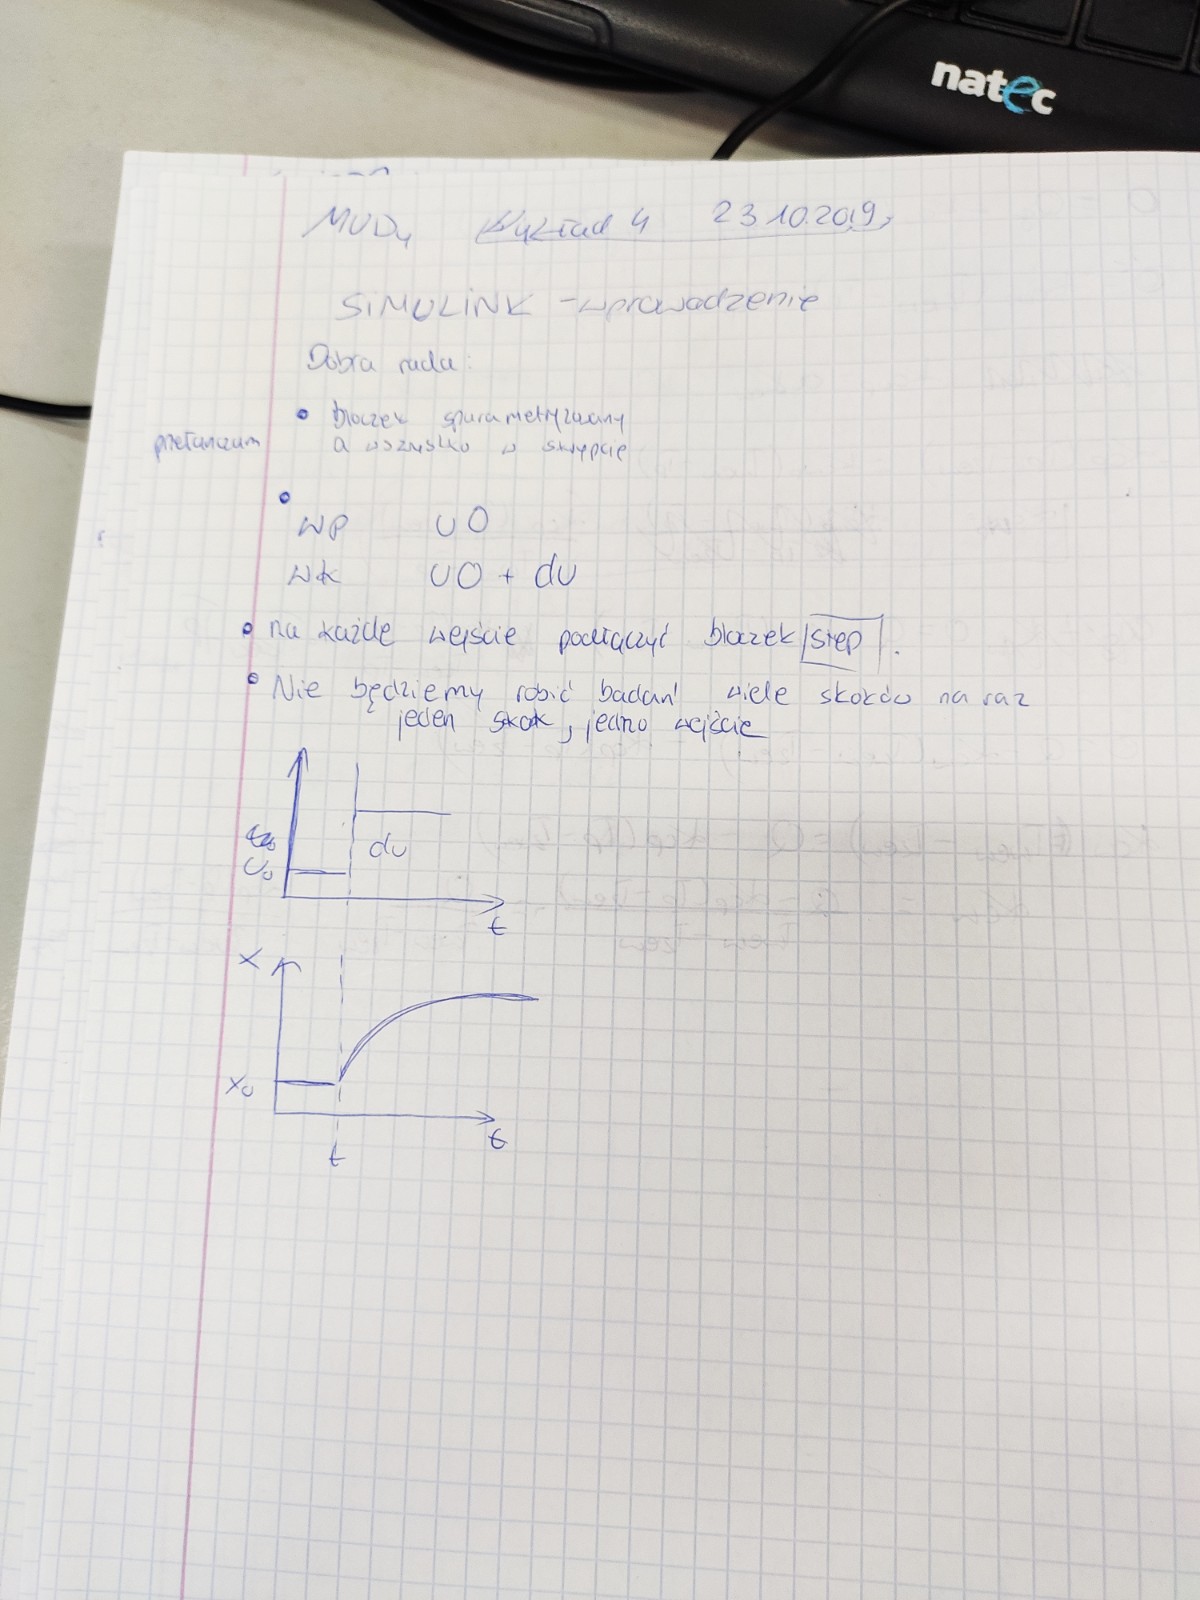 natec
MUD4 Wykład 4 23.10.2019
SIMULINK - wprowadzenie
Dobra rada:
• bloczek sparametryzowany
a wszystko w skrypcie
• 
WP U0
WK U0 + du
• na każde wejście podłączyć bloczek step.
• Nie będziemy robić badań wiele skoków na raz
jeden skok, jedno wejście
du
U0
t
x
x0
t
t